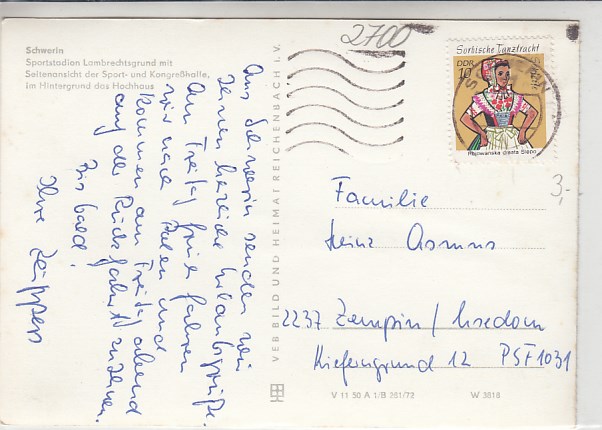 Schwerin
Sportstadion Lambrechtsgrund mit
Seitenansicht der Sport- und Kongreßhalle,
im Hintergrund das Hochhaus
Aus Schwerin senden wir
Ihnen herzliche Urlaubsgrüße.
Am Freitag früh fahren
wir nach Polen und
kommen am Freitag abend
auf der Rückfahrt zu Ihnen.
Bis bald!
Ihre
VEB BILD UND HEIMAT REICHENBACH I. V.
2700
Sorbische Tanztracht
DDR
10
3,-
Familie
Heinz Asmus
2237 Zempin / Usedom
Kieferngrund 12 PSF 1031
V 11 50 A 1/B 261/72 W 3818